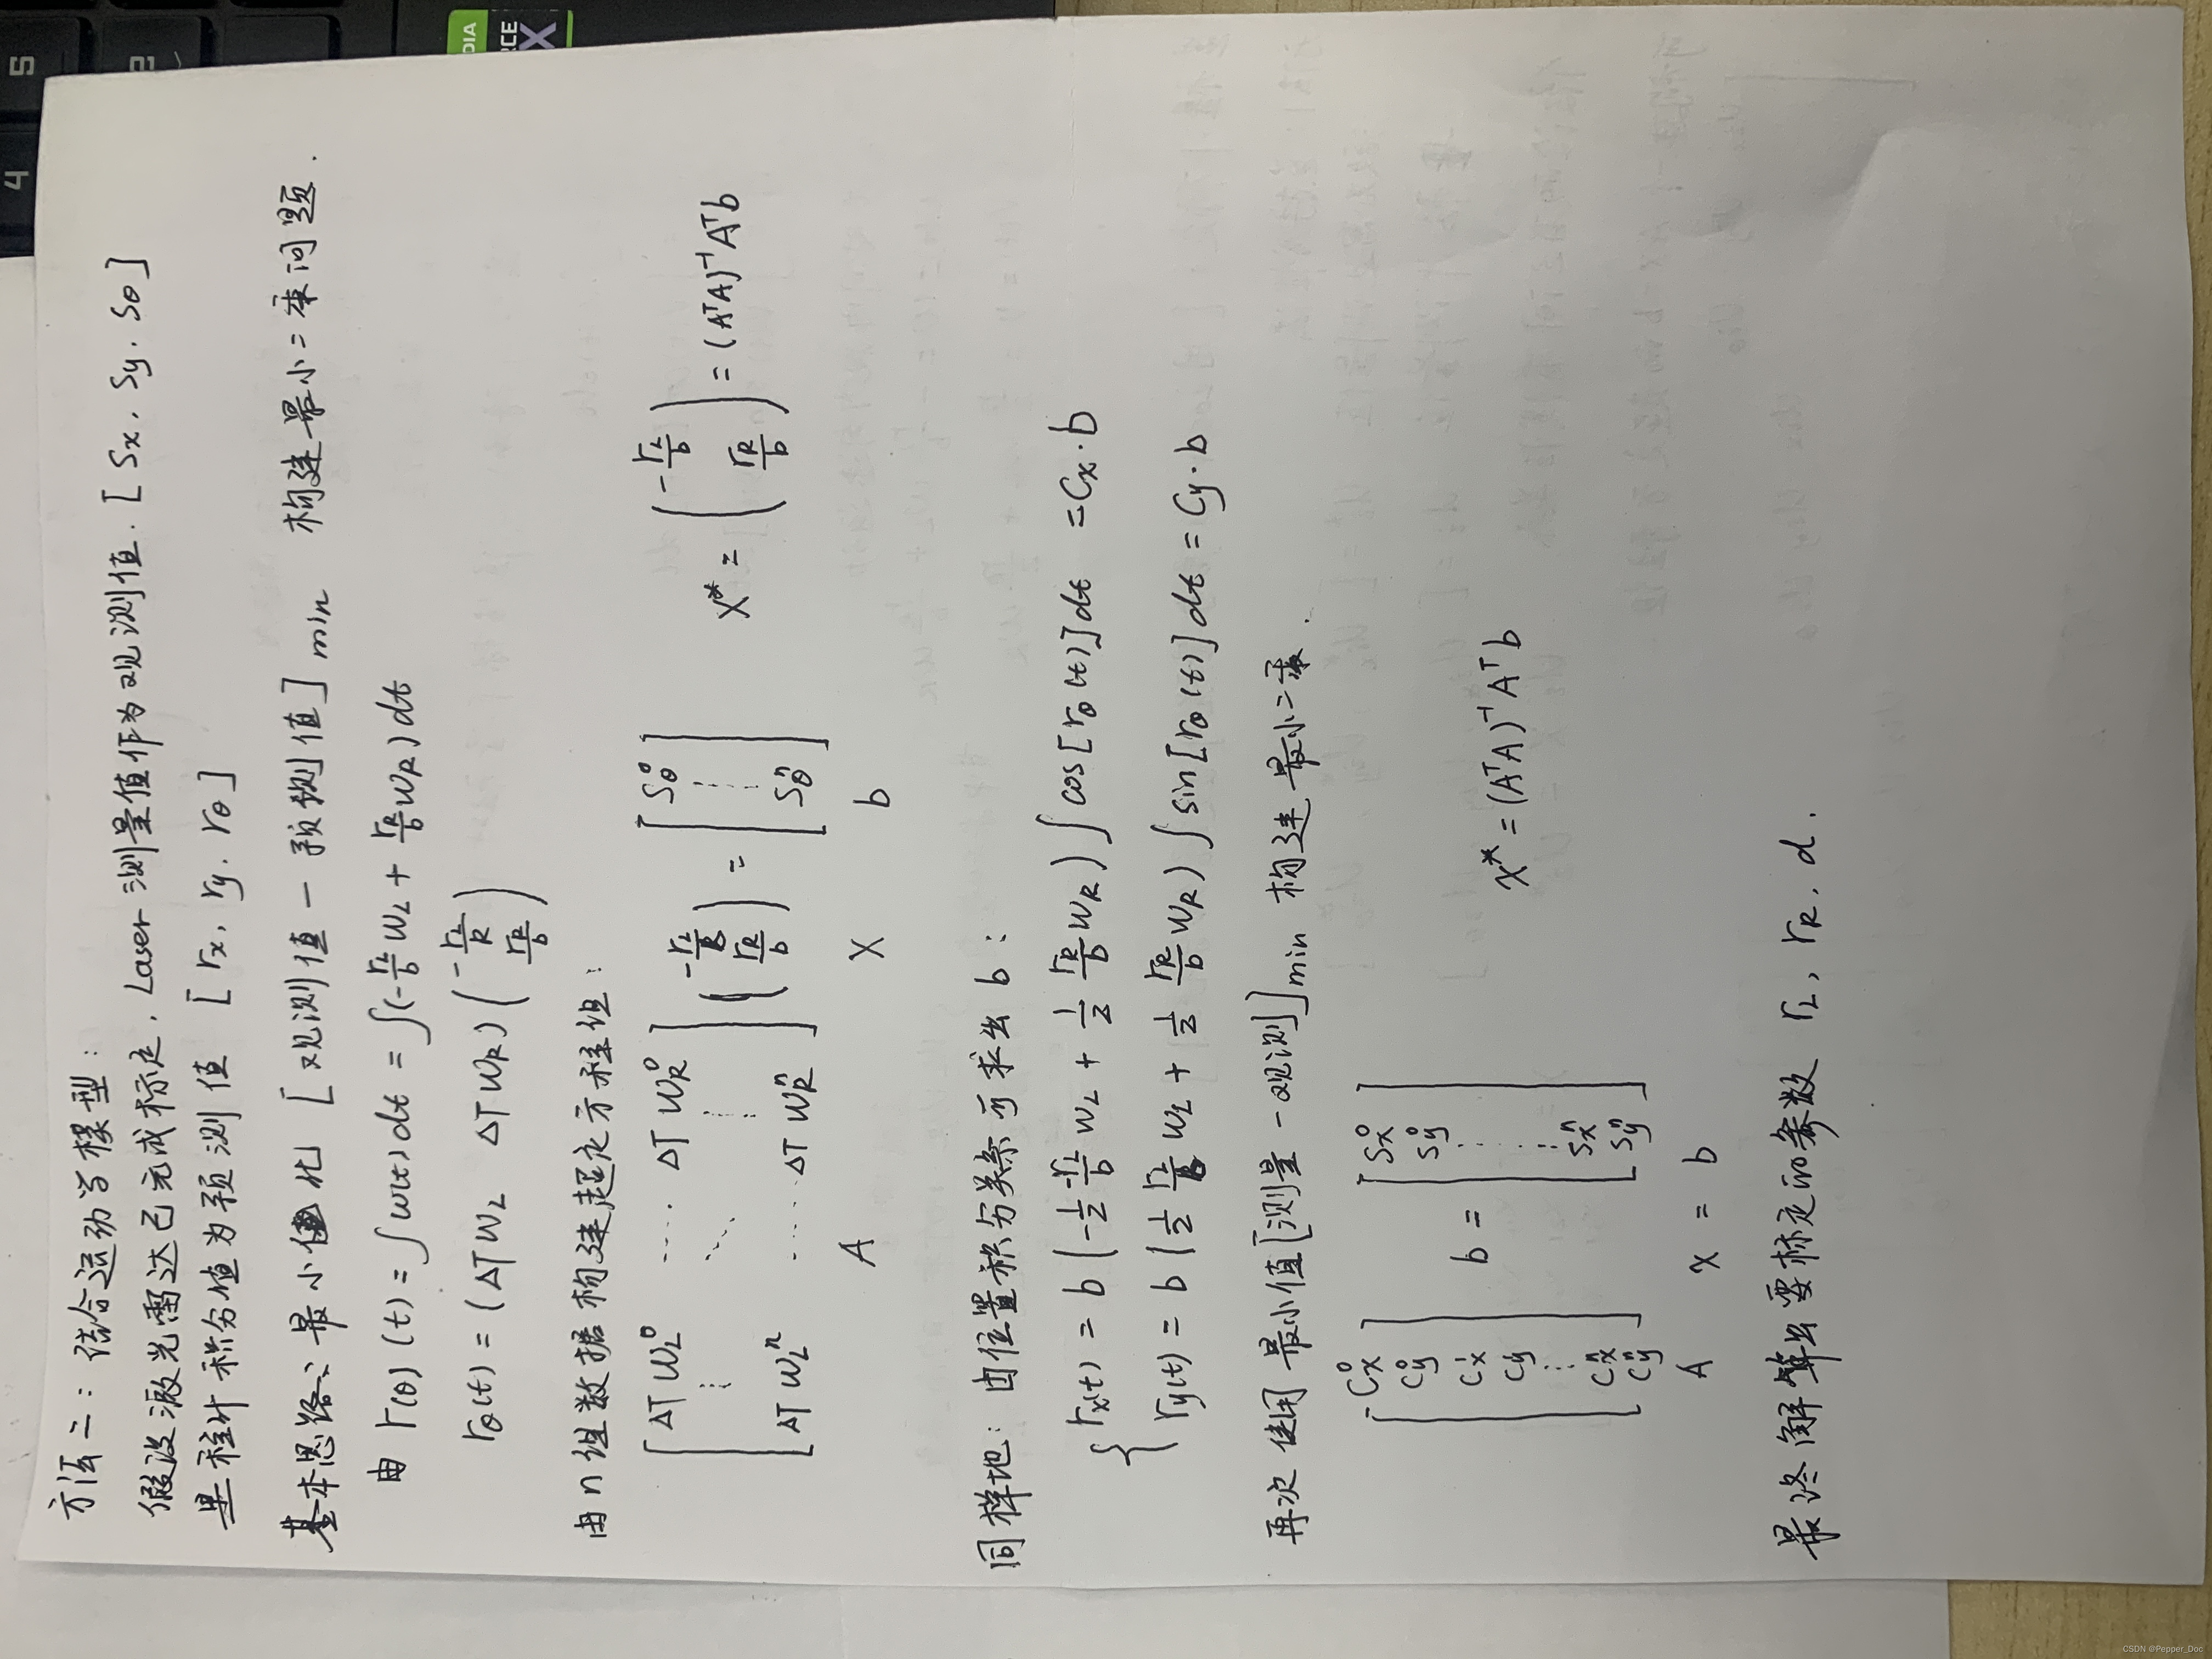 方法二：结合运动学模型：
假设激光雷达已完成标定，Laser测量值作为观测值．[Sx，Sy．Sθ]
里程计积分值为预测值 [rx，ry．rθ]
基本思路：最小值化 [观测值－预测值]min 构建最小二乘问题．
由 r(θ)(t) = ∫w(t)dt = ∫(-rL/b WL + rR/b WR)dt
rθ(t) = (ΔT WL ΔT WR) (-rL/R rR/b)
由n组数据构建超定方程组：
[ΔT WL^0 ···· ΔT WR^0 ⋮ ⋱ ⋮ ΔT WL^n ···· ΔT WR^n] (-rL/b rR/b) = [Sθ^0 ⋮ Sθ^n] X* = (-rL/b rR/b) = (AᵀA)⁻¹Aᵀb
A X b
同样地：由位置积分关系可求出b：
rx(t) = b(-1/2 -rL/b WL + 1/2 rR/b WR)∫cos[rθ(t)]dt = Cx·b
ry(t) = b(1/2 rL/b WL + 1/2 rR/b WR)∫sin[rθ(t)]dt = Cy·b
再次使用最小值[测量－观测]min 构建最小二乘．
[Cx^0 Cy^0 Cx^1 Cy ⋮ Cx^n Cy^n] b = [Sx^0 Sy^0 ⋮ Sx^n Sy^n] X* = (AᵀA)⁻¹Aᵀb
A x = b
最终解算出要标定的参数 rL，rR．d．
5
2
4
DIA
RCE
X
CSDN @Pepper_Doc